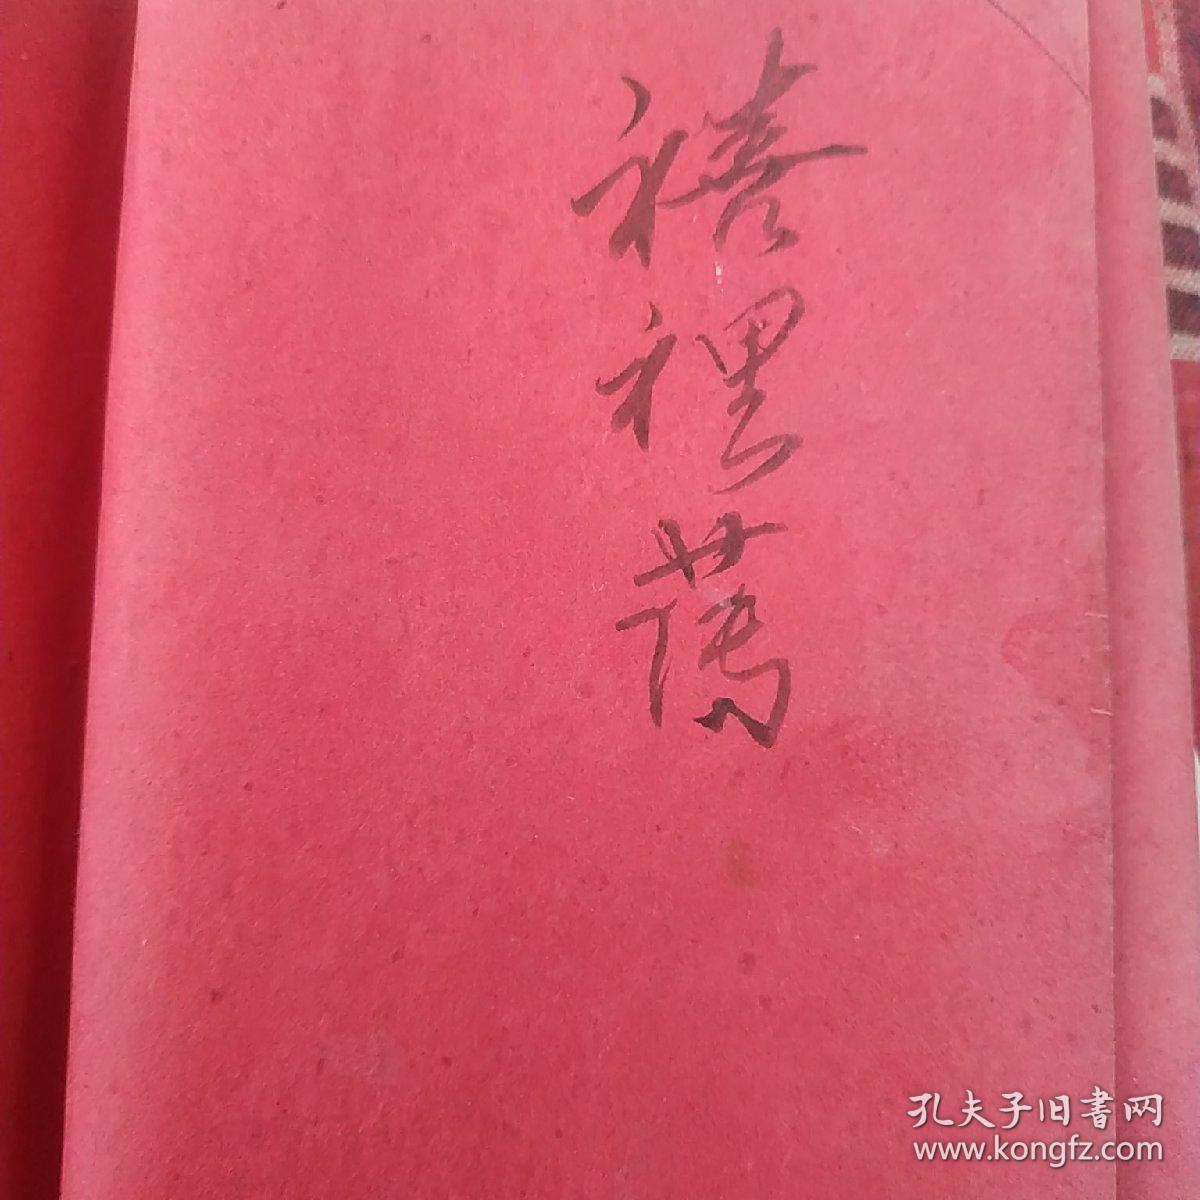 禧裡薄
孔夫子旧書网
www.kongfz.com